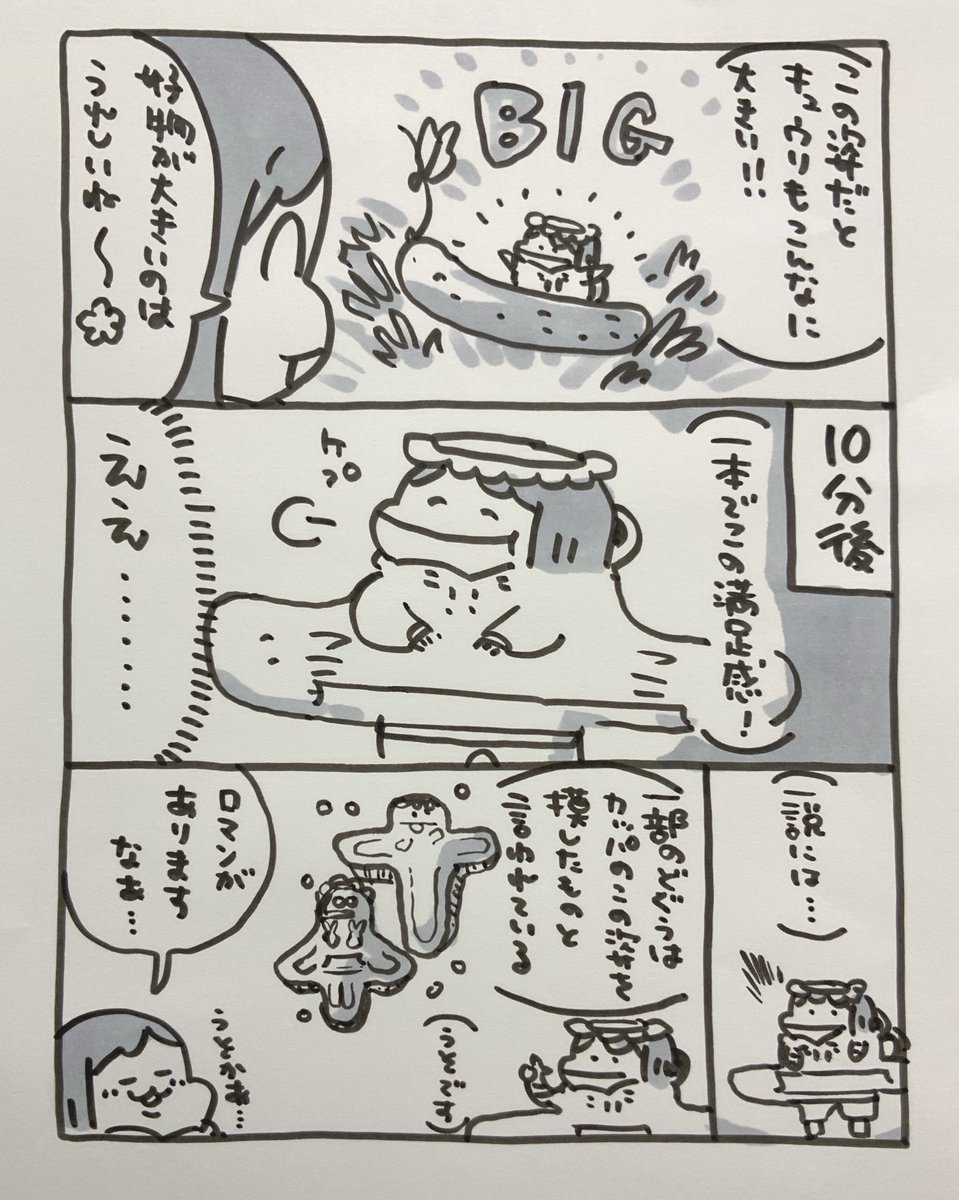 この姿だと
キュウリもこんなに
大きい!!
BIG
好物が大きいのは
うれしいね〜
10分後
一本でこの満足感!
ケプ
ええ.......
一説には…
一部のどぐうは
カッパのこの姿を
模したものと
言われている
ロマンが
あります
なぁ…